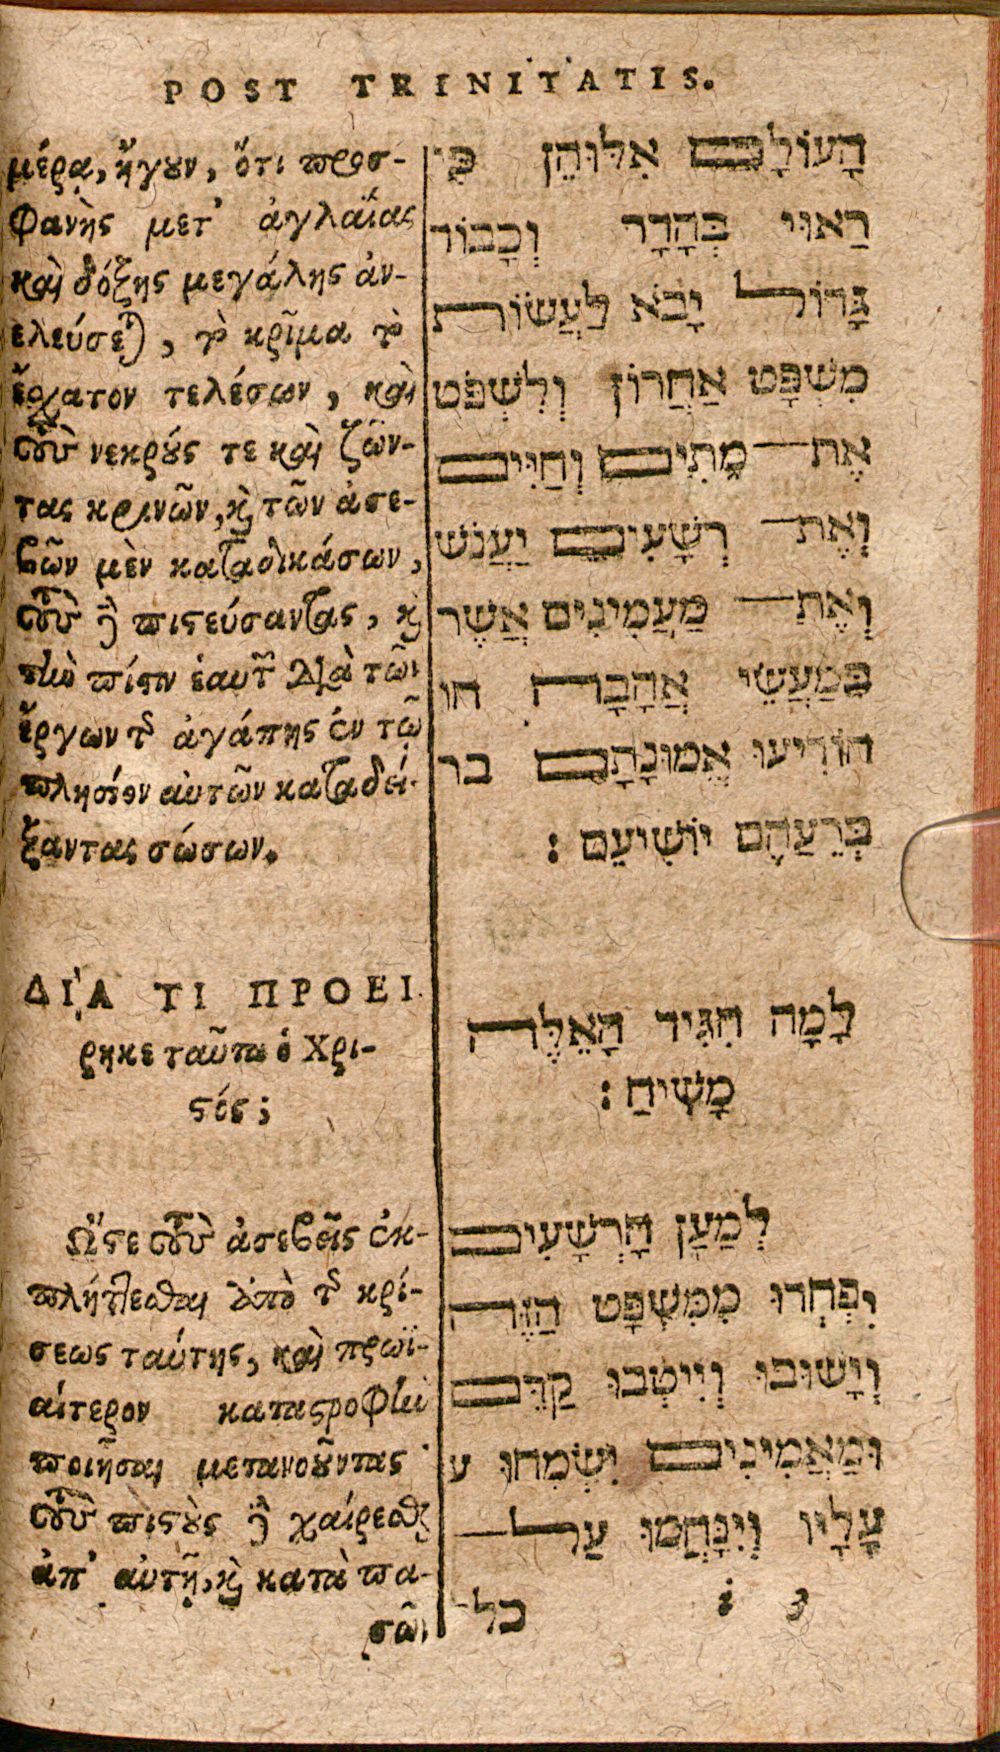 POST TRINITATIS.
μέρᾳ, ἤγουν, ὅτι προσ-
φανὴς μετ' ἀγλαΐας
καὶ δόξης μεγάλης ἀν-
ελεύσεται, τὸ κρῖμα τὸ
ἔσχατον τελέσων, καὶ
τοὺς νεκρούς τε καὶ ζῶν-
τας κρινῶν, καὶ τῶν ἀσε-
βῶν μὲν καταδικάσων,
τοὺς δὲ πιστεύσαντας, καὶ
τὴν πίστιν ἑαυτῶν διὰ τῶν
ἔργων τῆς ἀγάπης ἐν τῷ
πλησίον αὐτῶν καταδεί-
ξαντας σώσων.
ΔΙΑ ΤΙ ΠΡΟΕΙ-
ρηκε ταῦτα ὁ Χρι-
στός;
Ὥστε τοὺς ἀσεβεῖς ἐκ-
πλήττεσθαι ἀπὸ τῆς κρί-
σεως ταύτης, καὶ πρωϊ-
αίτερον καταστροφὴν
ποιῆσαι μετανοοῦντας·
τοὺς πιστοὺς δὲ χαίρεσθαι
ἀπ' αὐτῆς, καὶ κατὰ πα-
σῶν
הָעוֹלָם אִלּוּהֵן כִּי
רַאוּי בְּהָדָר וְכָבוֹד
גָּדוֹל יָבֹא לַעֲשׂוֹת
מִשְׁפָּט אַחֲרוֹן וְלִשְׁפֹּט
אֶת־ מֵתִים וְחַיִּים
וְאֶת־ רְשָׁעִים יַעֲנֹשׁ
וְאֶת־ מַעֲמִינִים אֲשֶׁר
בְּמַעֲשֵׂי אֲהָבָה הו
הוֹדִיעוּ אֱמוּנָתָם בר
בְּרֵעַהֶם יוֹשִׁיעֵם :
לָמָה הִגִּיד הָאֵלֶּה
מָשִׁיחַ :
לְמַעַן הָרְשָׁעִים
יִפְחְדוּ מִמִּשְׁפָּט הַזֶּה
וְיָשׁוּבוּ וְיִיטְבוּ קֹדֶם
וּמַאֲמִינִים יִשְׂמְחוּ ע
עָלָיו וְיִנָּחֲמוּ עַל־
i 3 כל־